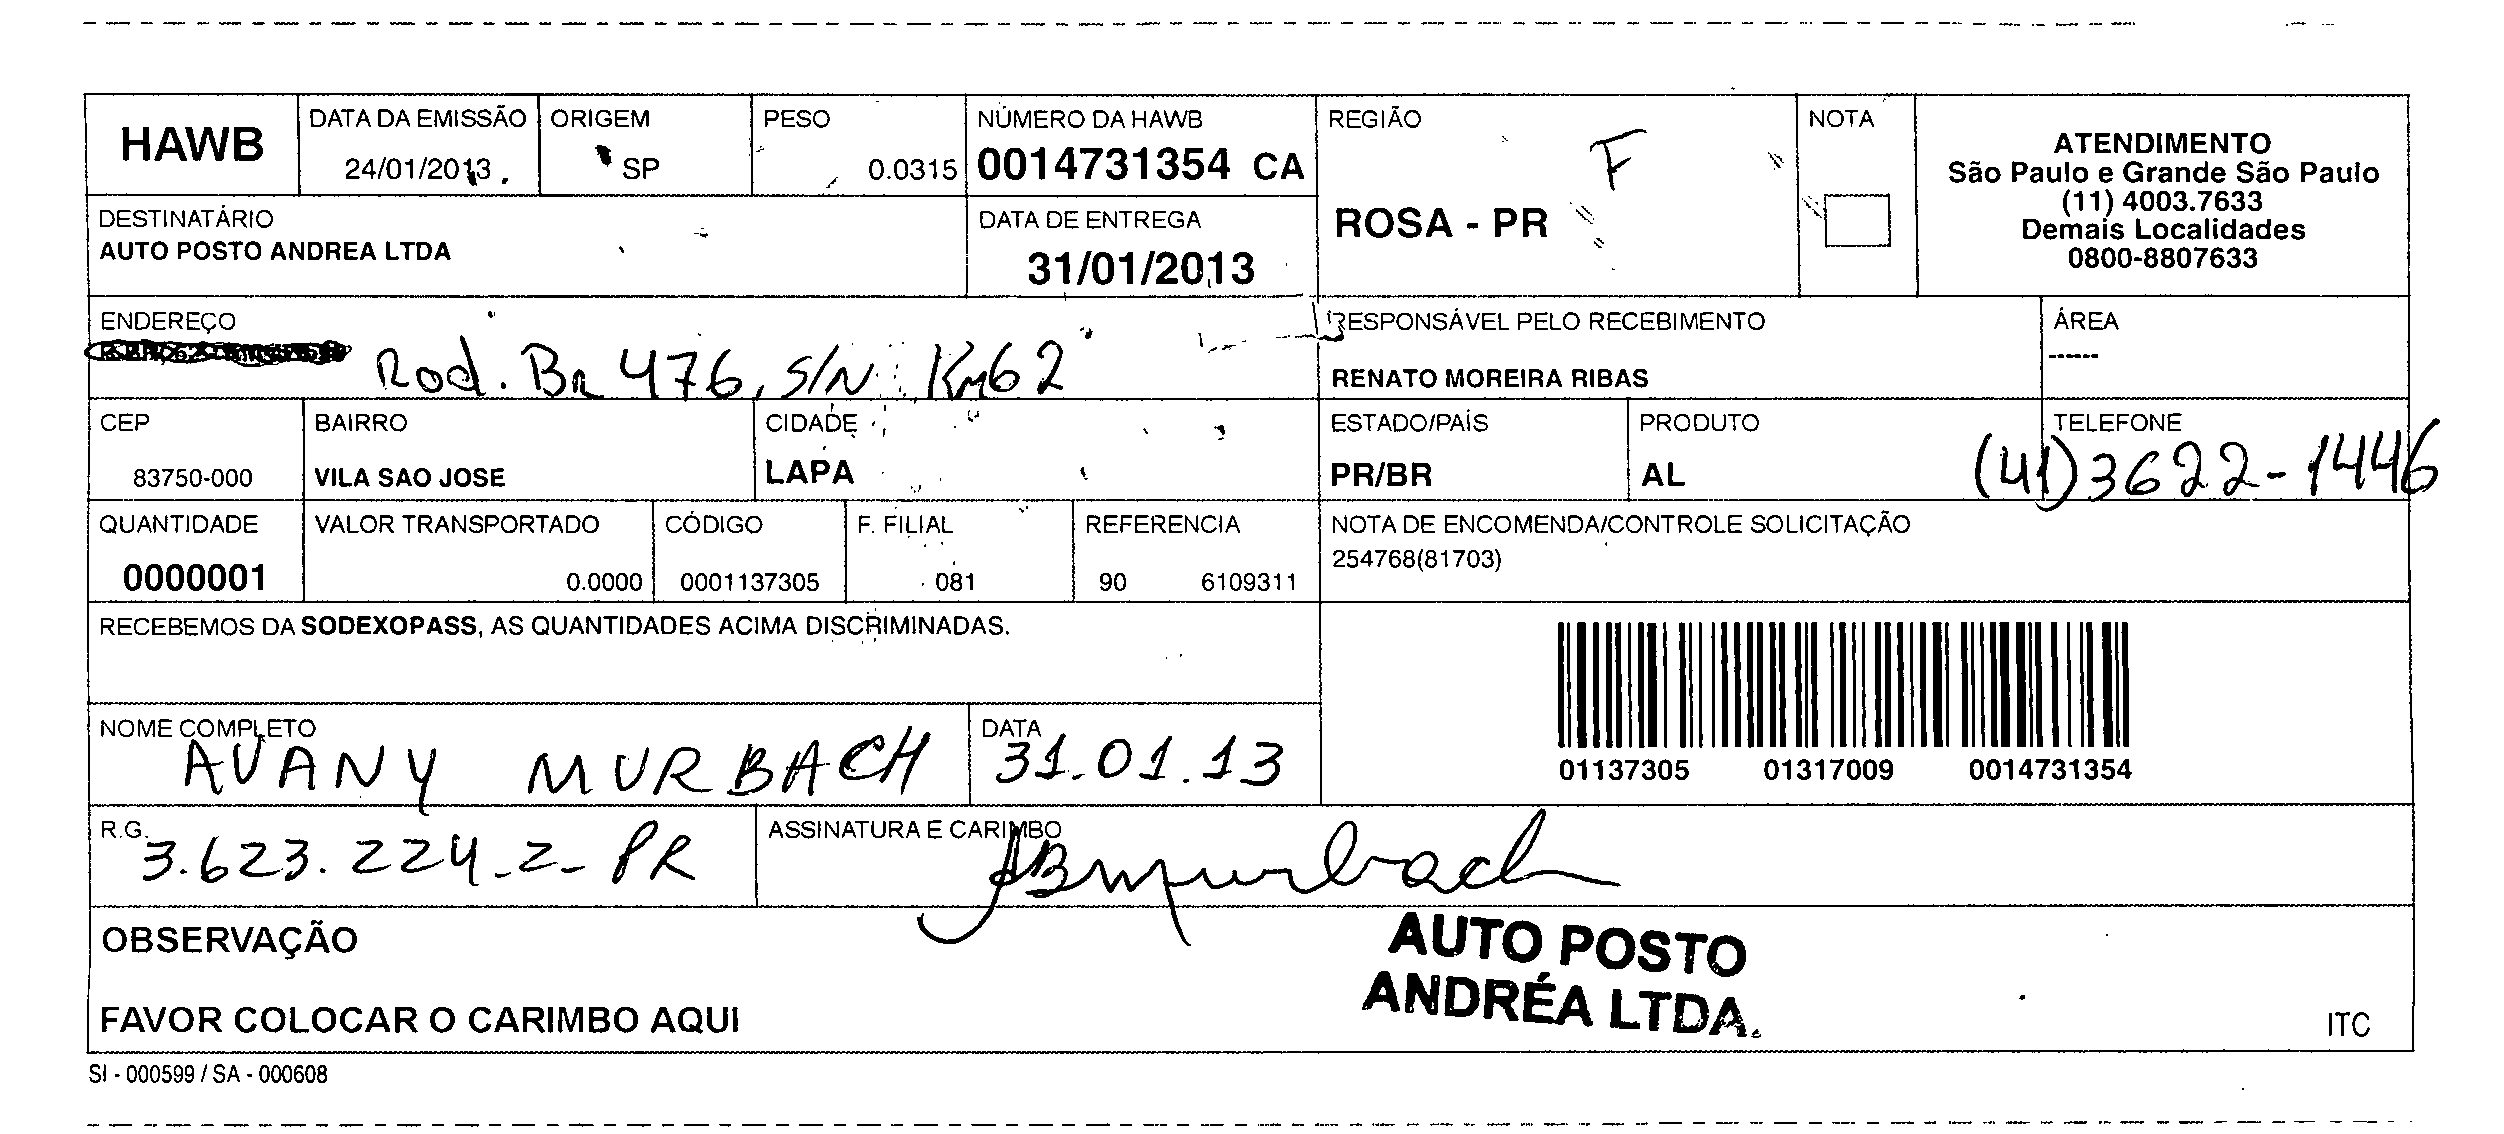 HAWB
DATA DA EMISSÃO
24/01/2013
ORIGEM
SP
PESO
0.0315
NÚMERO DA HAWB
0014731354 CA
REGIÃO
F
ROSA - PR
NOTA
ATENDIMENTO
São Paulo e Grande São Paulo
(11) 4003.7633
Demais Localidades
0800-8807633
DESTINATÁRIO
AUTO POSTO ANDREA LTDA
DATA DE ENTREGA
31/01/2013
ENDEREÇO
Rod. BR 476, S/N Km62
RESPONSÁVEL PELO RECEBIMENTO
RENATO MOREIRA RIBAS
ÁREA
------
CEP
83750-000
BAIRRO
VILA SAO JOSE
CIDADE
LAPA
ESTADO/PAÍS
PR/BR
PRODUTO
AL
TELEFONE
(41)3622-1446
QUANTIDADE
0000001
VALOR TRANSPORTADO
0.0000
CÓDIGO
0001137305
F. FILIAL
081
REFERENCIA
90 6109311
NOTA DE ENCOMENDA/CONTROLE SOLICITAÇÃO
254768(81703)
RECEBEMOS DA SODEXOPASS, AS QUANTIDADES ACIMA DISCRIMINADAS.
01137305 01317009 0014731354
NOME COMPLETO
AVANY MURBACH
DATA
31.01.13
R.G.
3.623.224-2-PR
ASSINATURA E CARIMBO
ABMurbach
OBSERVAÇÃO
FAVOR COLOCAR O CARIMBO AQUI
AUTO POSTO
ANDRÉA LTDA.
ITC
SI - 000599 / SA - 000608